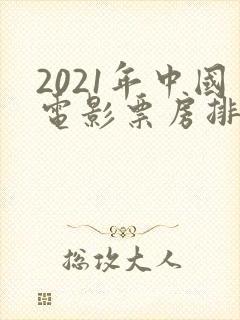 2021年中國
電影票房排
總攻大人